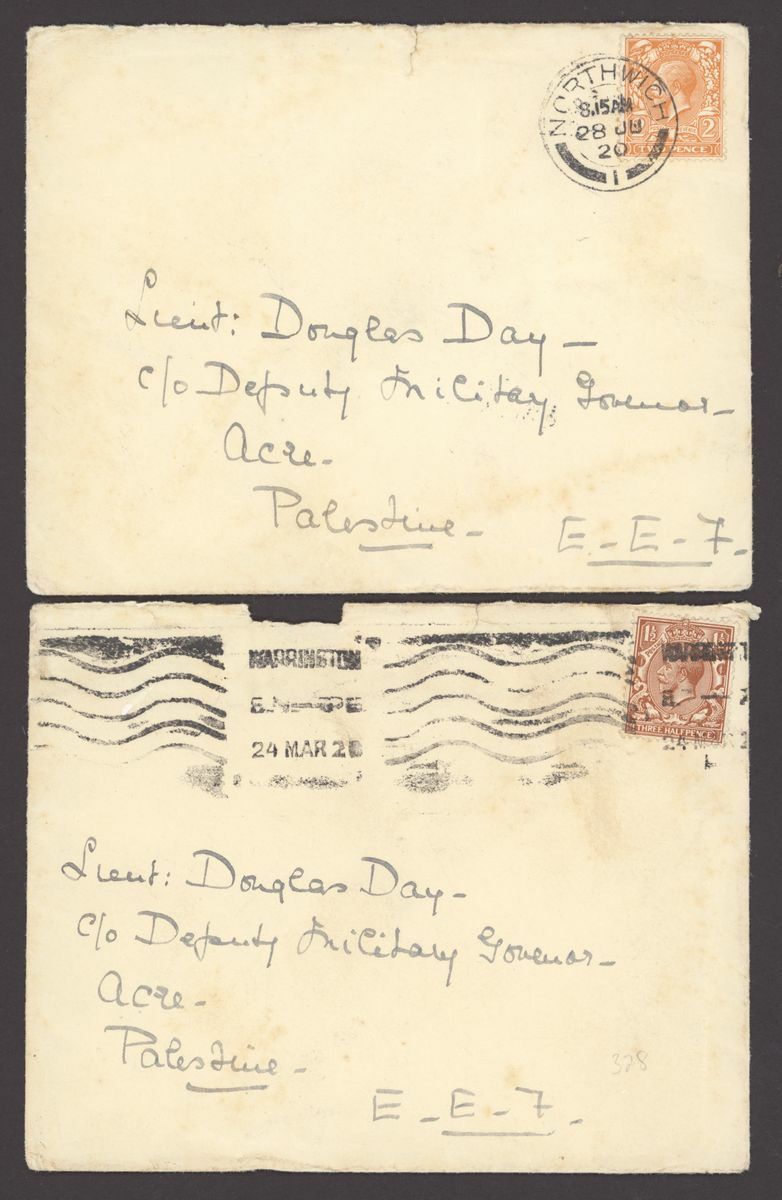 NORTHWICH
8.15AM
28 JU
20
1
2
TWO PENCE
Lieut: Douglas Day —
c/o Deputy Military Govenor —
Acre —
Palestine —
E - E - F.
WARRINGTON
24 MAR 20
1½ 1½
THREE HALFPENCE
24 MAR 2
Lieut: Douglas Day —
c/o Deputy Military Govenor —
Acre —
Palestine —
328
E - E - F.